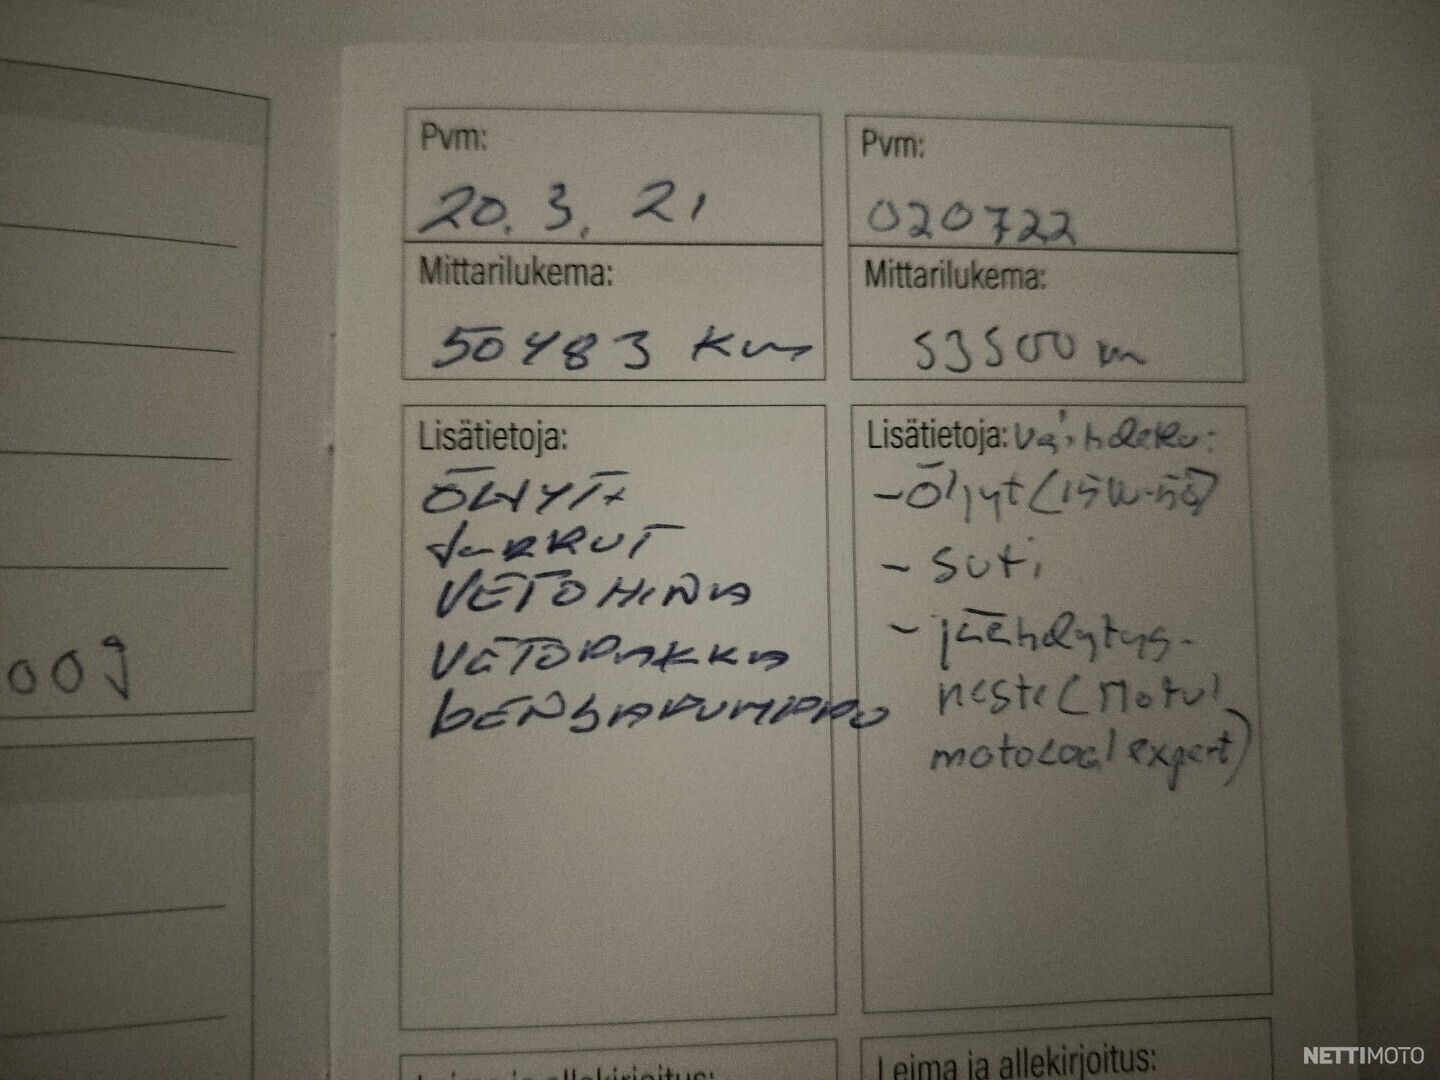 009
Pvm:
20.3.21
Mittarilukema:
50483 Km
Lisätietoja:
ÖLJYT+
JARRUT
VETOHIHNA
VETOPAKKA
BENSAPUMPPU
Pvm:
020722
Mittarilukema:
53500 km
Lisätietoja: Vaihdettu:
- Öljyt (15W-50)
- suti
- jäähdytys-
neste (Motul
motocool expert)
Leima ja allekirjoitus:
Leima ja allekirjoitus:
NETTIMOTO